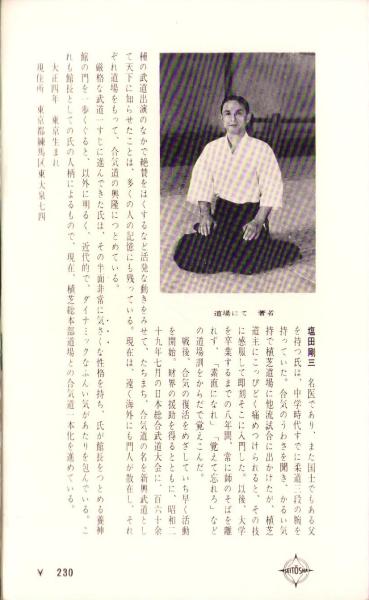 道場にて　著者
塩田剛三　名医であり、また国士でもある父
を持つ氏は、中学時代すでに柔道三段の腕を
持っていた。合気のうわさを聞き、かるい気
持で植芝道場に他流試合に出かけたが、植芝
道主にこっぴどく痛めつけられると、その技
に感服して即刻そこに入門した。以後、大学
を卒業するまでの八年間、常に師のそばを離
れず、「素直になれ」「覚えて忘れろ」など
の道場訓をからだで覚えこんだ。
戦後、合気の復活をめざしていち早く活動
を開始、財界の援助を得るとともに、昭和二
十九年七月の日本総合武道大会に、百六十余
種の武道出演のなかで絶賛をはくするなど活発な動きをみせて、たちまち、合気道の名を新興武道とし
て天下に知らせたことは、多くの人の記憶にも残っている。現在は、遠く海外にも門人が散在し、それ
ぞれ道場をもって、合気道の興隆につとめている。
厳格な武道一すじに進んできた氏は、その半面非常に気さくな性格を持ち、氏が館長をつとめる養神
館の門を一歩くぐると、以外に明るく、近代的で、ダイナミックなふんい気があたりを包んでいる。こ
れも館長としての氏の人柄によるもので、現在、植芝総本部道場との合気道一本化を進めている。
大正四年　東京生まれ
現住所　東京都練馬区東大泉七四
SEITOSHA
￥　230